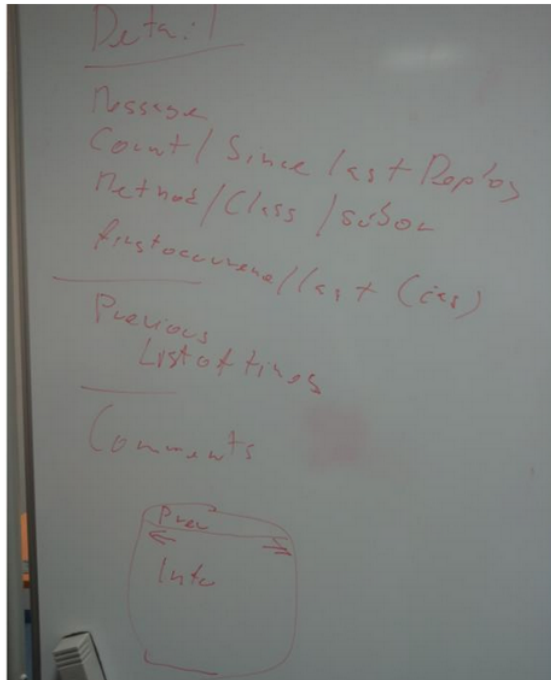 Detail
Message
Count / Since last Deploy
Method / Class /
firstoccurence / last
Previous
List of times
Comments
Prev
Info